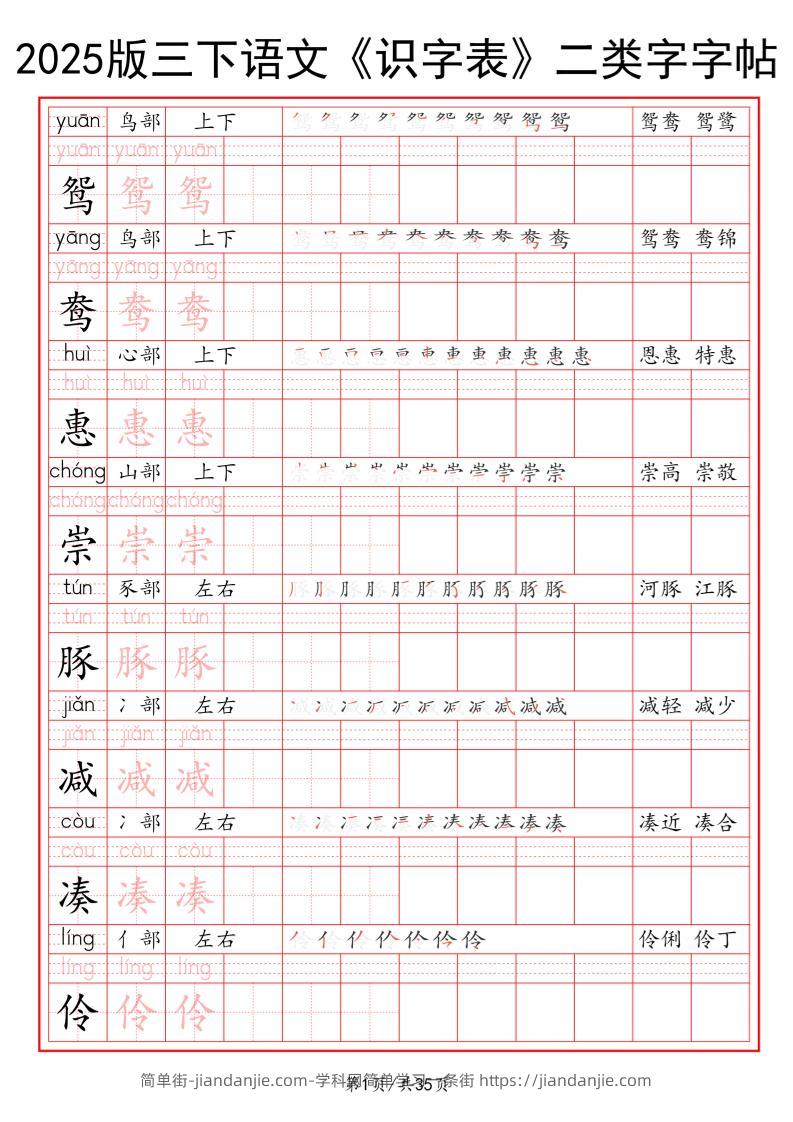 2025版三下语文《识字表》二类字字帖
yuān 鸟部 上下 鸳鸯 鸳鹭
yuān yuān yuān
鸳 鸳 鸳
yāng 鸟部 上下 鸳鸯 鸯锦
yāng yāng yāng
鸯 鸯 鸯
huì 心部 上下 恩惠 特惠
huì huì huì
惠 惠 惠
chóng 山部 上下 崇高 崇敬
chóng chóng chóng
崇 崇 崇
tún 豕部 左右 河豚 江豚
tún tún tún
豚 豚 豚
jiǎn 冫部 左右 减轻 减少
jiǎn jiǎn jiǎn
减 减 减
còu 冫部 左右 凑近 凑合
còu còu còu
凑 凑 凑
líng 亻部 左右 伶俐 伶丁
líng líng líng
伶 伶 伶
简单街-jiandanjie.com-学科网简单学习一条街 https://jiandanjie.com
第1页/共35页